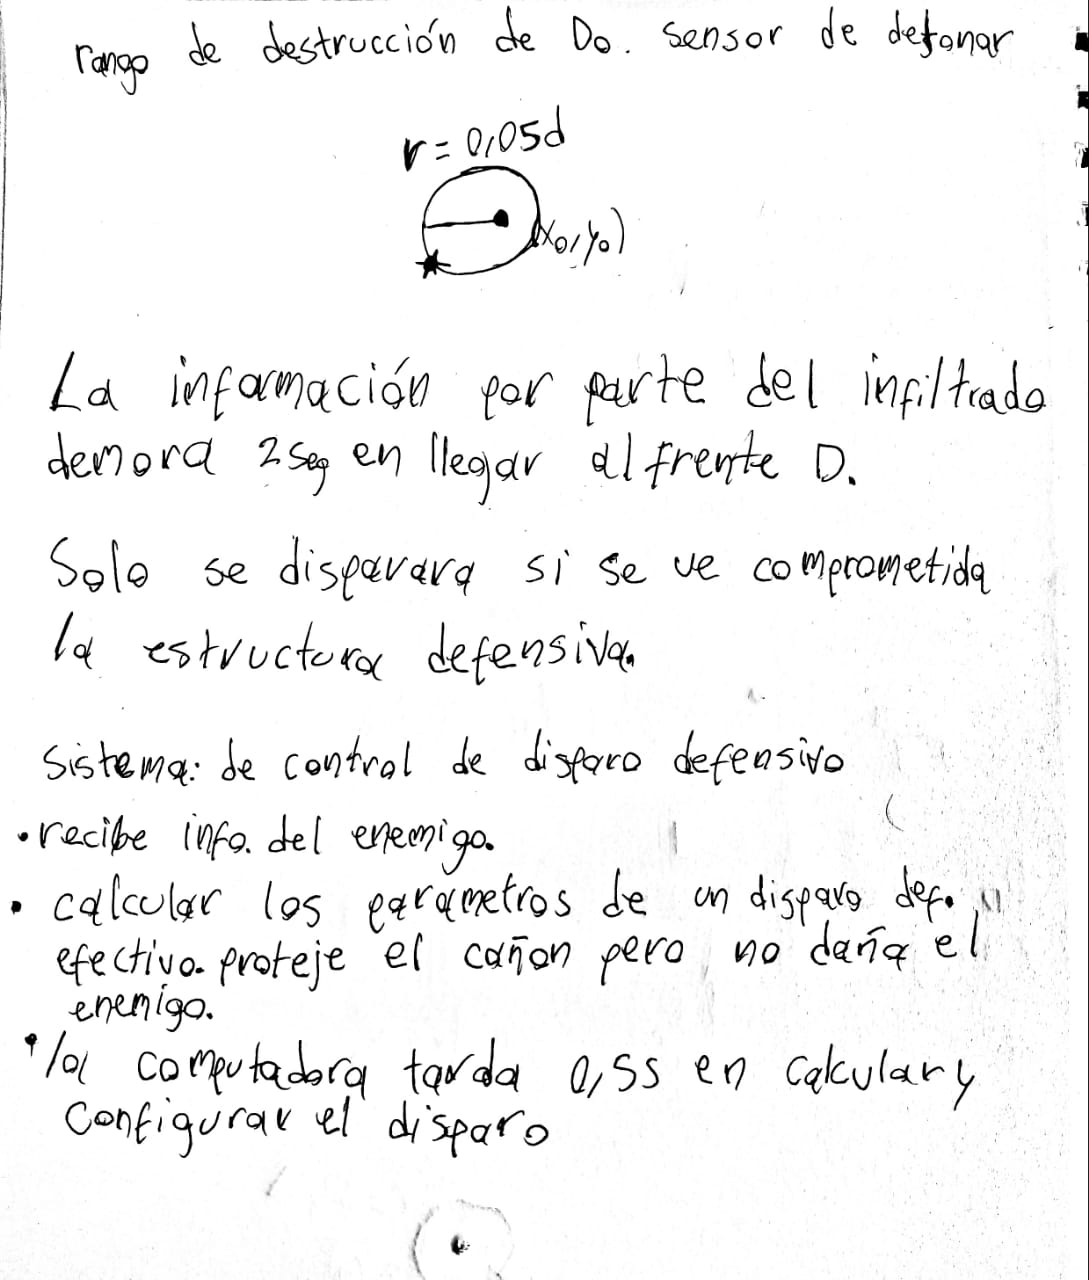 rango de destrucción de Do. sensor de detonar
r = 0,05d
(x0, y0)
La información por parte del infiltrado
demora 2 seg en llegar al frente D.
Solo se disparara si se ve comprometida
la estructura defensiva.
Sistema: de control de disparo defensivo
• recibe info. del enemigo.
• calcular los parametros de un disparo def.
efectivo. proteje el cañon pero no daña el
enemigo.
• la computadora tarda 0,5s en calcular y
configurar el disparo